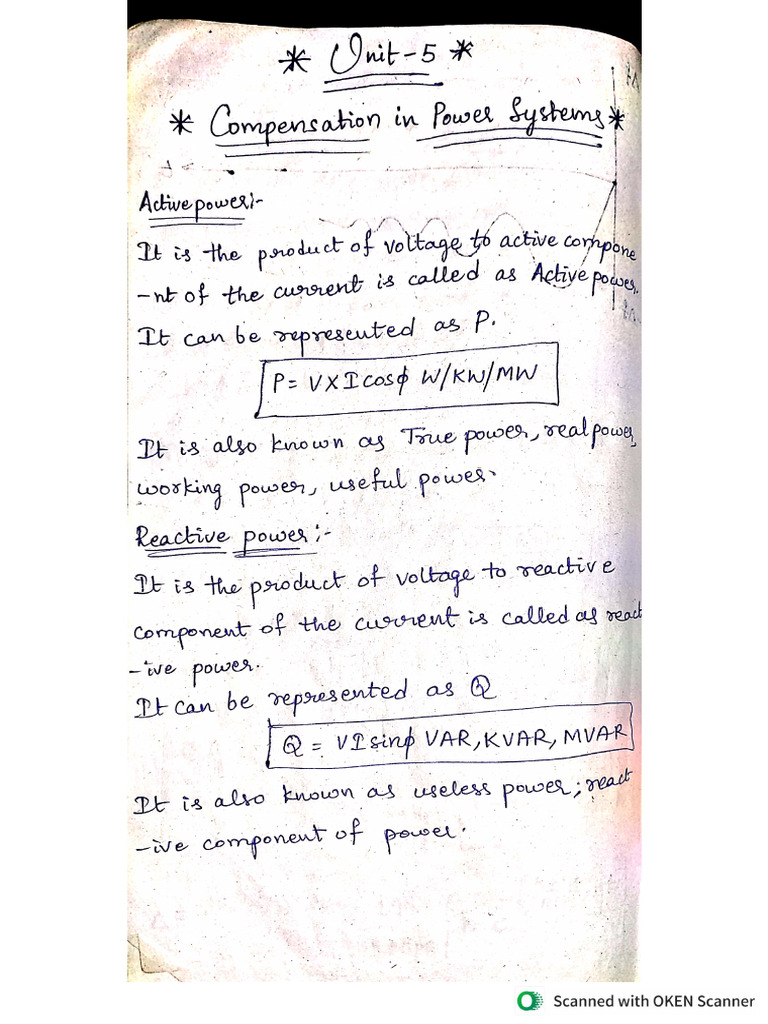 * Unit-5 *
* Compensation in Power Systems *
Active power:-
It is the product of voltage to active compone
-nt of the current is called as Active power.
It can be represented as P.
P = V X I cosϕ W/KW/MW
It is also known as True power, real power,
working power, useful power.
Reactive power:-
It is the product of voltage to reactive
component of the current is called as react
-ive power.
It can be represented as Q
Q = VI sinϕ VAR, KVAR, MVAR
It is also known as useless power; react
-ive component of power.
Scanned with OKEN Scanner